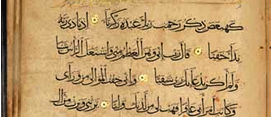 كهيعص ذكر رحمت ربك عبده زكريا اذ نادى ربه
نداء خفيا قال رب انى وهن العظم منى واشتعل الراس شيبا
ولم اكن بدعائك رب شقيا وانى خفت الموالى من وراى
وكانت امراتى عاقرا فهب لى من لدنك وليا يرثنى ويرث من ال